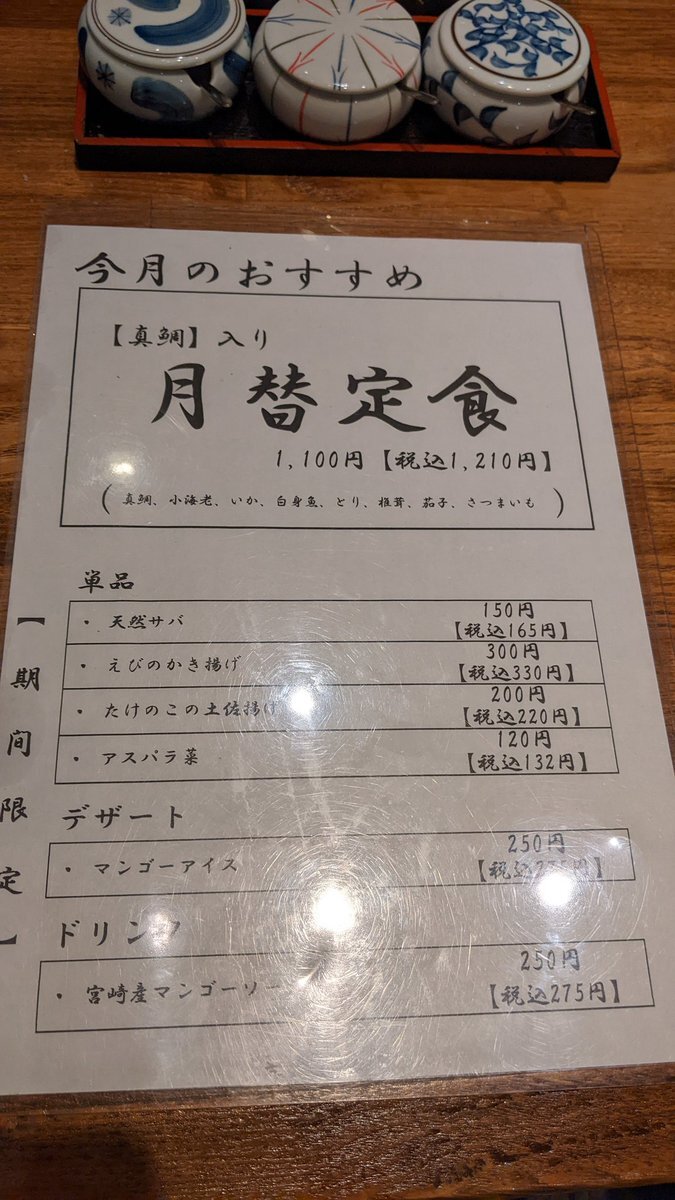 今月のおすすめ
【真鯛】入り
月替定食
1,100円【税込1,210円】
(真鯛、小海老、いか、白身魚、とり、椎茸、茄子、さつまいも)
【期間限定】
単品
・天然サバ 150円
【税込165円】
・えびのかき揚げ 300円
【税込330円】
・たけのこの土佐揚げ 200円
【税込220円】
・アスパラ菜 120円
【税込132円】
デザート
・マンゴーアイス 250円
【税込275円】
ドリンク
・宮崎産マンゴーソー 250円
【税込275円】